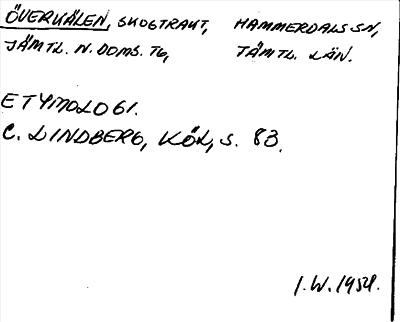 ÖVERKÄLEN, SKOGTRAKT, HAMMERDALS SN,
JÄMTL. N. DOMS. TG, JÄMTL. LÄN.
ETYMOLOGI.
C. LINDBERG, KÖL, S. 83.
I.W. 1954.